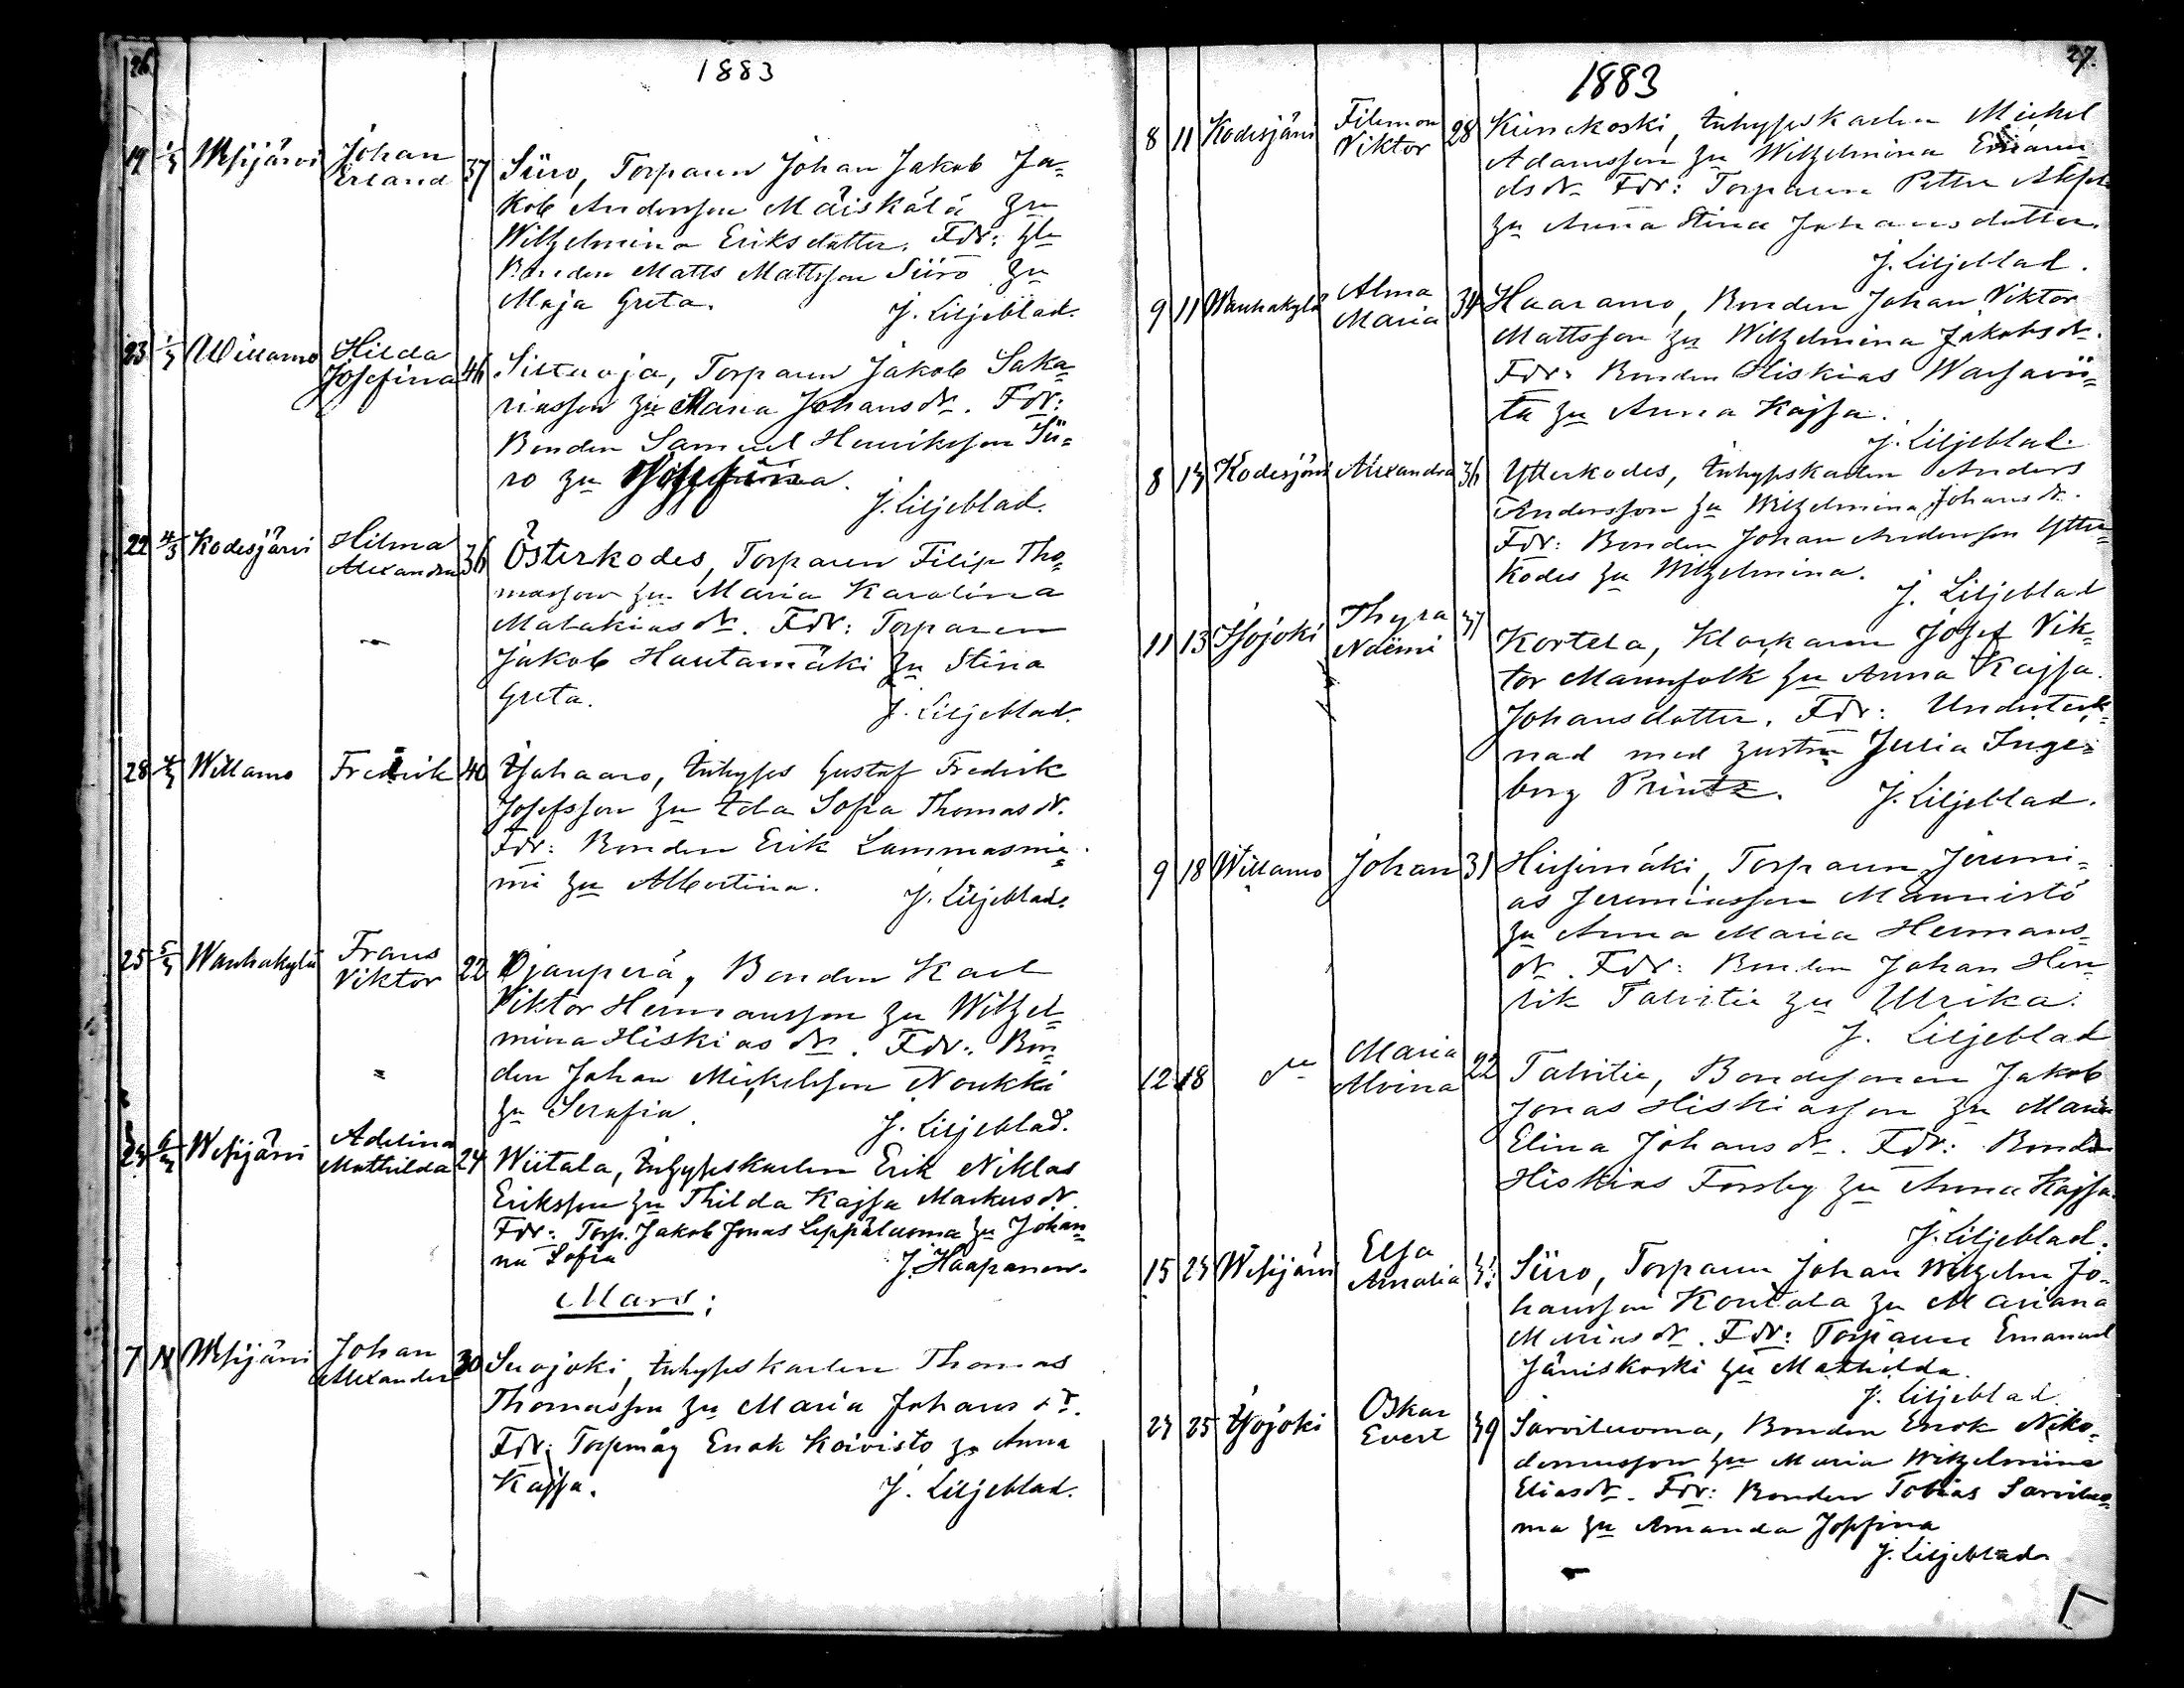 26
1883
19 1/3 Wesijärvi Johan Erland 37 Siiro, Torparen Johan Jakob Ja=
kob Andersson Mäiskälä hu
Wilhelmina Eriksdotter. Fdr:
Bonden Matts Mattsson Siiro hu
Maja Greta.
J. Liljeblad.
23 1/3 Willamo Hilda Josefina 46 Siltaoja, Torparen Jakob Saka=
riasson hu Maria Johansdr. Fdr:
Bonden Samuel Henriksson Sii=
ro hu Josefina.
J. Liljeblad.
22 4/3 Kodesjärvi Hilma Alexandra 36 Österkodes, Torparen Filip Tho=
masson hu Maria Karolina
Malakiasdr. Fdr: Torparen
Jakob Hautamäki hu Stina
Greta.
J. Liljeblad.
28 4/3 Willamo Fredrik 40 Ijahaaro, Inhyses Gustaf Fredrik
Josefsson hu Ida Sofia Thomasdr.
Fdr: Bonden Erik Lammasnie=
mi hu Albertina.
J. Liljeblad.
25 5/3 Wanhakylä Frans Viktor 22 Ojanperä, Bonden Karl
Viktor Hermansson hu Wilhel=
mina Hiskiasdr. Fdr: Bon=
den Johan Mickelsson Noukki
hu Serafia.
J. Liljeblad.
23 6/3 Wesijärvi Adelina Mathilda 24 Wiitala, Inhyseskarlen Erik Niklas
Eriksson hu Thilda Kajsa Markusdr.
Fdr: Torp. Jakob Jonas Leppäluoma hu Johan=
na Sofia
J. Haapanen.
Mars:
7 11 Wesijärvi Johan Alexander 30 Suojoki, Inhyseskarlen Thomas
Thomasson hu Maria Johansdr.
Fdr: Torpmåg Enok Koivisto hu Anna
Kajsa.
J. Liljeblad.
27.
1883
8 11 Kodesjärvi Filemon Viktor 28 Inhyseskarlen Mickel
Adamsson hu Wilhelmina
dsdr. Fdr: Torparen Petter
hu Anna Stina Johansdotter.
J. Liljeblad.
9 11 Wanhakylä Alma Maria 34 Haaramo, Bonden Johan Viktor
Mattsson hu Wilhelmina Jakobsdr.
Fdr: Bonden Hiskias Warsavii=
ta hu Anna Kajsa.
J. Liljeblad.
8 13 Kodesjärvi Alexandra 36 Ytterkodes, Inhyseskarlen Anders
Andersson hu Wilhelmina Johansdr.
Fdr: Bonden Johan Andersson Ytter=
kodes hu Wilhelmina.
J. Liljeblad
11 13 Isojoki Thyra Nöemi 31 Kortela, Klockaren Josef Vik=
tor Mannfolk hu Anna Kajsa
Johansdotter. Fdr: Underteck=
nad med hustru Julia Inge=
borg Printz.
J. Liljeblad.
9 18 Willamo Johan 31 Hirsimäki, Torparen Jeremi=
as Jeremiasson Männistö
hu Anna Maria Hermans=
dr. Fdr: Bonden Johan Hen=
rik Talvitie hu Ulrika.
J. Liljeblad
12 18 do Maria Alvina 22 Talvitie, Bondesonen Jakob
Jonas Hiskiasson hu Maria
Elina Johansdr. Fdr: Bonden
Hiskias Forsby hu Anna Kajsa.
J. Liljeblad.
15 23 Wesijärvi Elsa Amalia Siiro, Torparen Johan Wilhelm Jo=
hansson Kontola hu Mariana
Mariasdr. Fdr: Torparen Emanuel
Jäniskoski hu Mathilda.
J. Liljeblad.
23 25 Isojoki Oskar Evert 39 Sarviluoma, Bonden Enok Niko=
demusson hu Maria Wilhelmiina
Eliasdr. Fdr: Bonden Tobias Sarviluo=
ma hu Amanda Josefina
J. Liljeblad